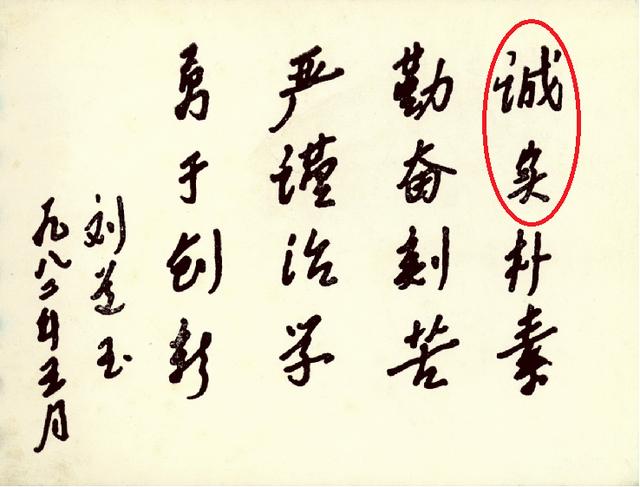 诚实朴素
勤奋刻苦
严谨治学
勇于创新
刘道玉
一九八二年五月